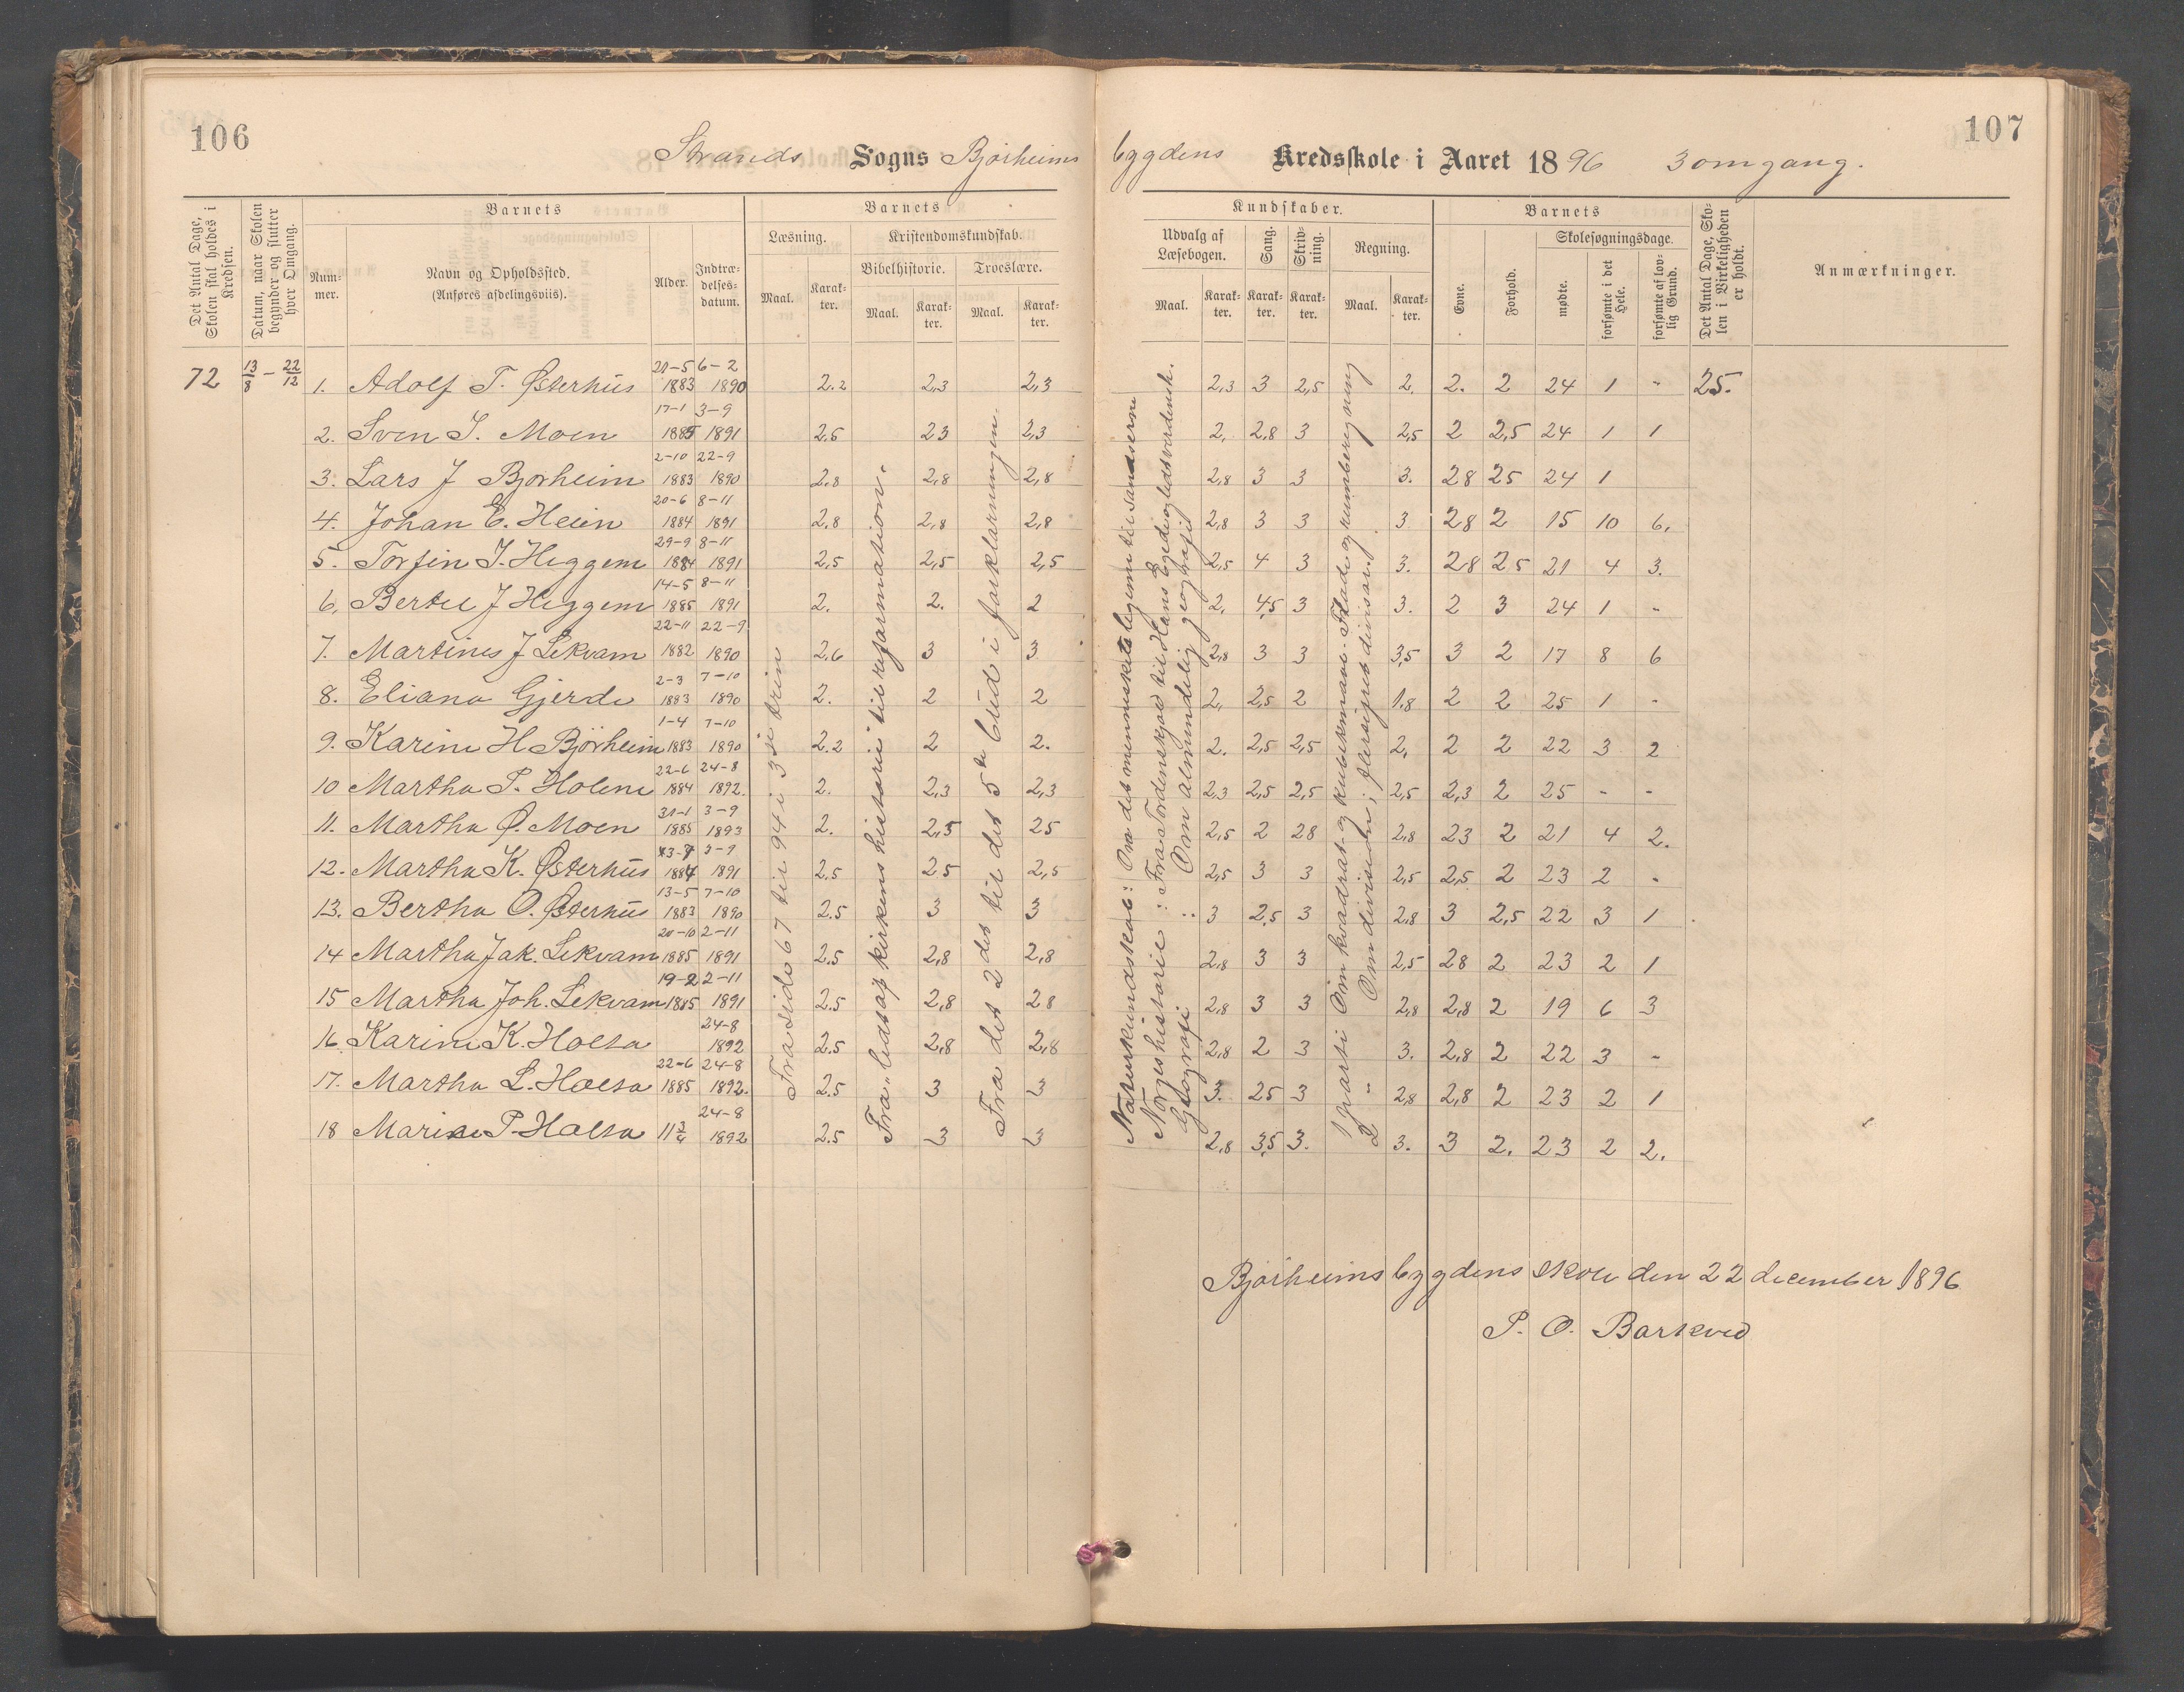 106
107
Strands Sogns Bjørheims bygdens Kredsskole i Aaret 1896 3 omgang.
Det Antal Dage, Skolen skal holdes i Kredsen.
Datum, naar Skolen begynder og slutter hver Omgang.
Barnets
Num-mer.
Navn og Opholdssted.
(Anføres afdelingsviis).
Alder.
Indtræ-delses-datum.
Barnets
Læsning.
Maal.
Karak-ter.
Kristendomskundskab.
Bibelhistorie.
Maal.
Karak-ter.
Troeslære.
Maal.
Karak-ter.
Kundskaber.
Udvalg af Læsebogen.
Maal.
Karak-ter.
Sang.
Karak-ter.
Skriv-ning.
Karak-ter.
Regning.
Maal.
Karak-ter.
Barnets
Evne.
Forhold.
Skolesøgningsdage.
mødte.
forsømte i det Hele.
forsømte af lov-lig Grund.
Det Antal Dage, Sko-len i Virkeligheden er holdt.
Anmærkninger.
72 13/8 – 22/12
1. Adolf T. Østerhus 20-5 1883 6-2 1890 2.2 2,3 2,3 2,3 3 2,5 2. 2. 2 24 1 - 25.
2. Sven I. Moen 17-1 1885 3-9 1891 2.5 23 2,3 2, 2,8 3 2,5 2 2,5 24 1 1
3. Lars J Bjørheim 2-10 1883 22-9 1890 2,8 2,8 2,8 2,8 3 3 3. 28 25 24 1
4. Johan E. Heien 20-6 1884 8-11 1891 2,8 2,8 2,8 2,8 3 3 3 28 2 15 10 6,
5. Torfin J. Heggem 29-9 1884 8-11 1891 2,5 2,5 2,5 2,5 4 3 3. 28 25 21 4 3.
6, Bertel J Heggem 14-5 1885 8-11 1891 2. 2. 2 2, 4,5 3 3. 2 3 24 1 -
7. Martines J Lekvam 22-11 1882 22-9 1890 2,6 3 3 2,8 3 3 3,5 3 2 17 8 6
8. Eliana Gjerde 2-3 1883 7-10 1890 2. 2 2 2, 2,5 2 1.8 2 2 25 1 -
9. Karine H Bjørheim 1-4 1883 7-10 1890 2.2 2 2. 2. 2,5 2,5 2, 2 2 22 3 2
10 Martha P. Holene 22-6 1884 24-8 1892. 2. 2,3 2,3 2,3 2,5 2,5 2,5 2,3 2 25 - -
11. Martha Ø. Moen 31-1 1885 3-9 1893 2. 2,5 25 2,5 2 28 2,8 23 2 21 4 2.
12. Martha K. Østerhus 1884 3-9 1891 2,5 25 2,5 2,5 3 3 2,5 2,5 2 23 2 -
13. Bertha O. Østerhus 13-5 1883 7-10 1890 2.5 3 3 3 2,5 3 2,8 3 2,5 22 3 1
14 Martha Jak. Lekvam 20-10 1885 2-11 1891 2.5 2,8 2,8 2,8 3 3 2,5 28 2 23 2 1
15 Martha Joh. Lekvam 19-2 1885 2-11 1891 2.5 2,8 28 2,8 3 3 2,8 2,8 2 19 6 3
16 Karine K. Holta 24-8 1892 2.5 2,8 2,8 2,8 2 3 3. 2,8 2 22 3 -
17. Martha L. Holta 22-6 1885 24-8 1892. 2.5 3 3 3. 25 3 2,8 2,8 2 23 2 1
18 Marine P Holta 11 3/4 24-8 1892 2.5 3 3 2,8 3,5 3. 3. 3 2. 23 2 2.
Fra side 67 til 94 i 3 je trin
Fra kirkens historie til reformationen.
Fra det 2 det til det 5 te bud i forklarningen.
Naturkundskab: Om det menneskelige legeme til sandserne
Norges historie: Fra Tordenskjold til Hans Egede
Geografi : Om almindelig geografi
1 parti Om kvadrat- og kubikmaal. Flade og rumberegning
2 " Om divisionen, flersifret divisor.
Bjørheimsbygdens skole den 22 december 1896
P. O. Barkved